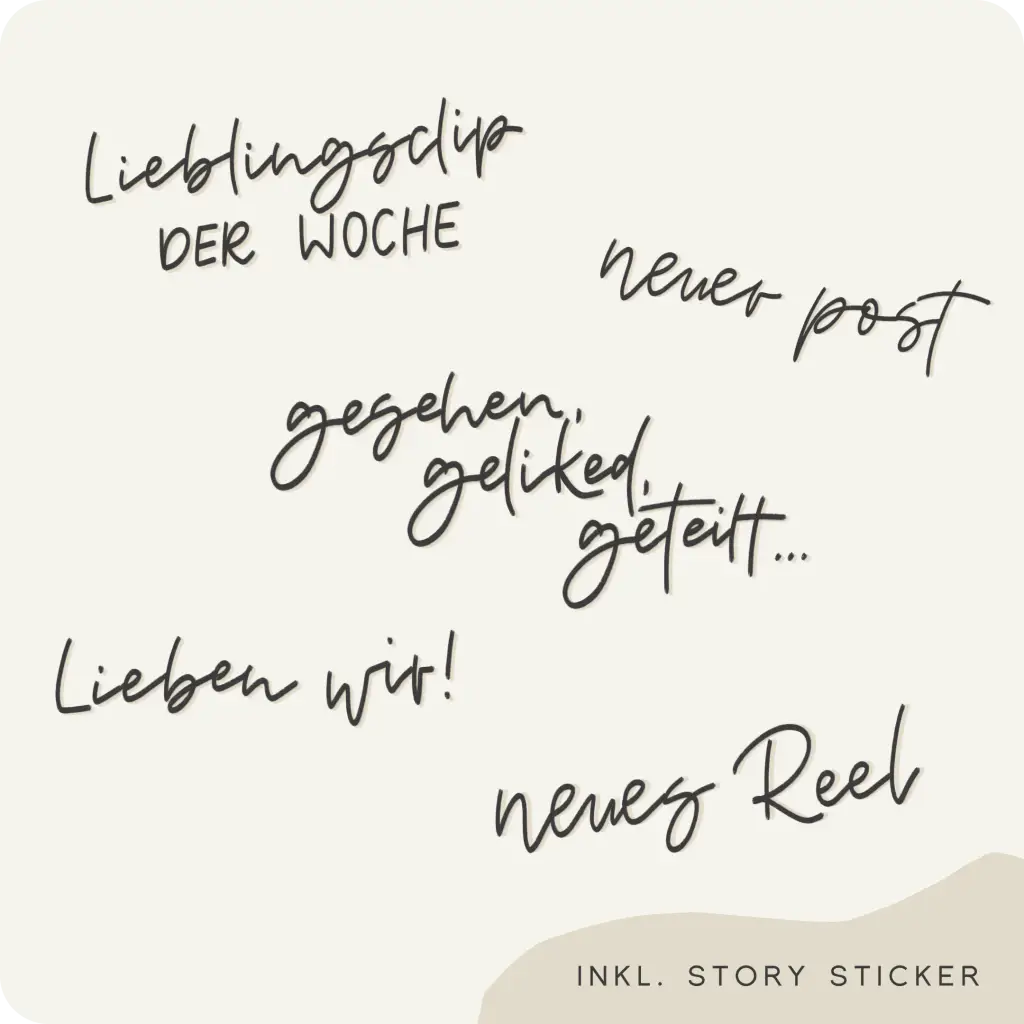 Lieblingsclip
DER WOCHE
neuer post
gesehen,
geliked,
geteilt...
Lieben wir!
neues Reel
INKL. STORY STICKER